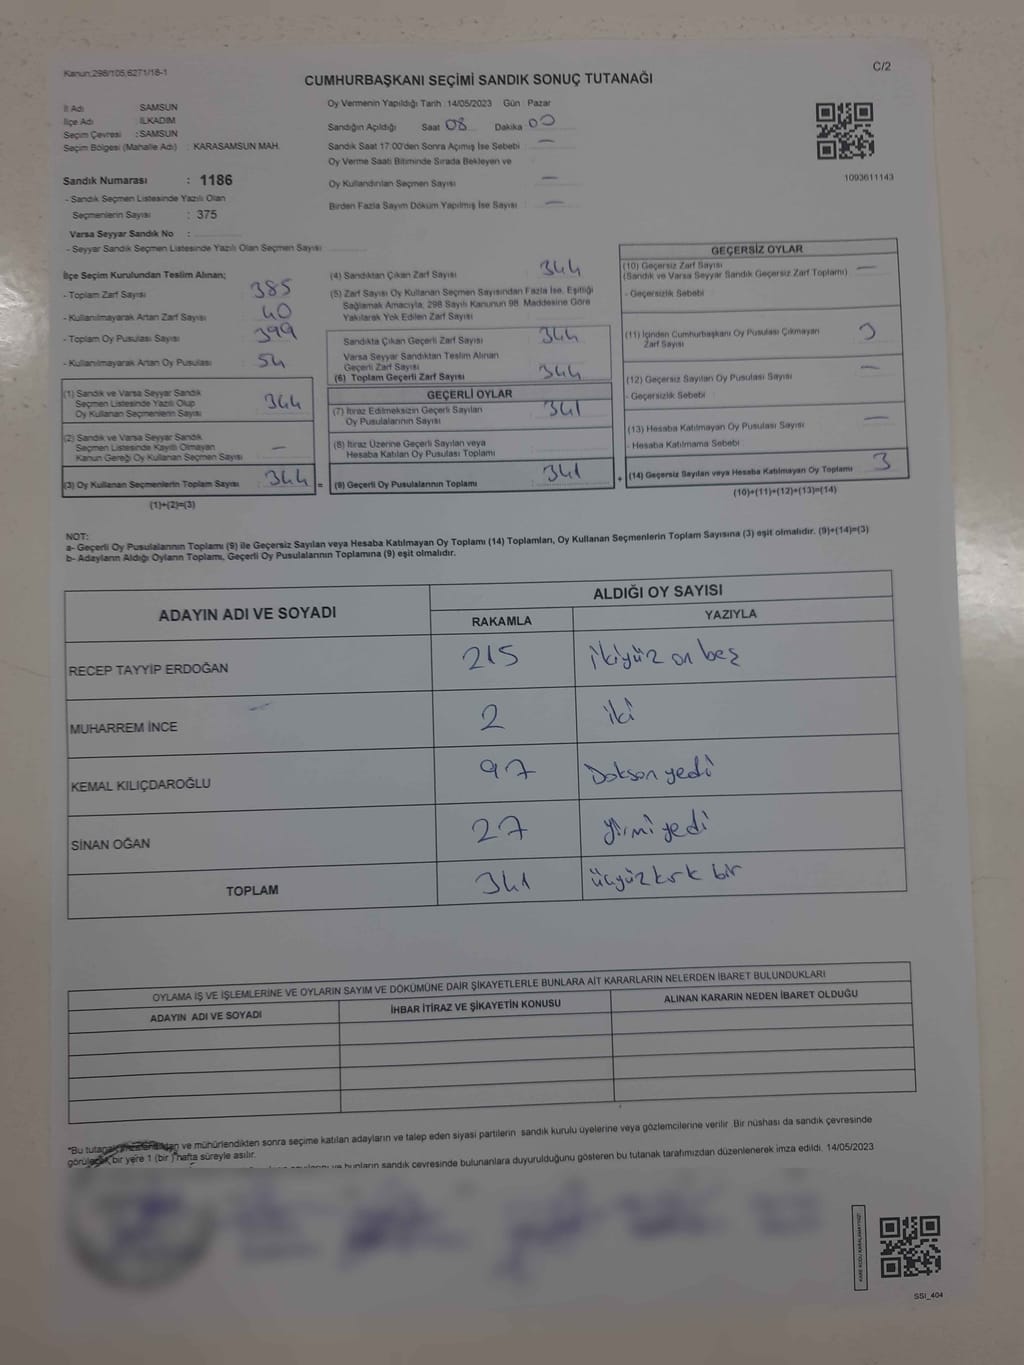 Kanun:298/105,6271/18-1
C/2
CUMHURBAŞKANI SEÇİMİ SANDIK SONUÇ TUTANAĞI
İl Adı SAMSUN
İlçe Adı İLKADIM
Seçim Çevresi :SAMSUN
Seçim Bölgesi (Mahalle Adı) : KARASAMSUN MAH.
Sandık Numarası : 1186
- Sandık Seçmen Listesinde Yazılı Olan
Seçmenlerin Sayısı : 375
Varsa Seyyar Sandık No :
- Seyyar Sandık Seçmen Listesinde Yazılı Olan Seçmen Sayısı
Oy Vermenin Yapıldığı Tarih :14/05/2023 Gün : Pazar
Sandığın Açıldığı Saat 08 Dakika 00
Sandık Saat 17:00'den Sonra Açımış İse Sebebi : —
Oy Verme Saati Bitiminde Sırada Bekleyen ve
Oy Kullandırılan Seçmen Sayısı —
Birden Fazla Sayım Döküm Yapılmış İse Sayısı : —
1093611143
İlçe Seçim Kurulundan Teslim Alınan;
- Toplam Zarf Sayısı 385
- Kullanılmayarak Artan Zarf Sayısı 40
- Toplam Oy Pusulası Sayısı 399
- Kullanılmayarak Artan Oy Pusulası 54
(1) Sandık ve Varsa Seyyar Sandık
Seçmen Listesinde Yazılı Olup
Oy Kullanan Seçmenlerin Sayısı 344
(2) Sandık ve Varsa Seyyar Sandık
Seçmen Listesinde Kayıtlı Olmayan
Kanun Gereği Oy Kullanan Seçmen Sayısı —
(3) Oy Kullanan Seçmenlerin Toplam Sayısı 344 =
(1)+(2)=(3)
(4) Sandıktan Çıkan Zarf Sayısı 344
(5) Zarf Sayısı Oy Kullanan Seçmen Sayısından Fazla İse, Eşitliği
Sağlamak Amacıyla, 298 Sayılı Kanunun 98. Maddesine Göre
Yakılarak Yok Edilen Zarf Sayısı
Sandıkta Çıkan Geçerli Zarf Sayısı 344
Varsa Seyyar Sandıktan Teslim Alınan
Geçerli Zarf Sayısı
(6) Toplam Geçerli Zarf Sayısı 344
GEÇERLİ OYLAR
(7) İtiraz Edilmeksizin Geçerli Sayılan
Oy Pusulalarının Sayısı 341
(8) İtiraz Üzerine Geçerli Sayılan veya
Hesaba Katılan Oy Pusulası Toplamı
(9) Geçerli Oy Pusulalarının Toplamı 341 +
GEÇERSİZ OYLAR
(10) Geçersiz Zarf Sayısı —
(Sandık ve Varsa Seyyar Sandık Geçersiz Zarf Toplamı)
- Geçersizlik Sebebi :
(11) İçinden Cumhurbaşkanı Oy Pusulası Çıkmayan
Zarf Sayısı 3
(12) Geçersiz Sayılan Oy Pusulası Sayısı —
- Geçersizlik Sebebi :
(13) Hesaba Katılmayan Oy Pusulası Sayısı —
- Hesaba Katılmama Sebebi :
(14) Geçersiz Sayılan veya Hesaba Katılmayan Oy Toplamı 3
(10)+(11)+(12)+(13)=(14)
NOT:
a- Geçerli Oy Pusulalarının Toplamı (9) ile Geçersiz Sayılan veya Hesaba Katılmayan Oy Toplamı (14) Toplamları, Oy Kullanan Seçmenlerin Toplam Sayısına (3) eşit olmalıdır. (9)+(14)=(3)
b- Adayların Aldığı Oyların Toplamı, Geçerli Oy Pusulalarının Toplamına (9) eşit olmalıdır.
ADAYIN ADI VE SOYADI
ALDIĞI OY SAYISI
RAKAMLA YAZIYLA
RECEP TAYYİP ERDOĞAN 215 ikiyüz on beş
MUHARREM İNCE 2 iki
KEMAL KILIÇDAROĞLU 97 Doksan yedi
SİNAN OĞAN 27 yirmi yedi
TOPLAM 341 üçyüz kırk bir
OYLAMA İŞ VE İŞLEMLERİNE VE OYLARIN SAYIM VE DÖKÜMÜNE DAİR ŞİKAYETLERLE BUNLARA AİT KARARLARIN NELERDEN İBARET BULUNDUKLARI
ADAYIN ADI VE SOYADI İHBAR İTİRAZ VE ŞİKAYETİN KONUSU ALINAN KARARIN NEDEN İBARET OLDUĞU
*Bu tutanak ve mühürlendikten sonra seçime katılan adayların ve talep eden siyasi partilerin sandık kurulu üyelerine veya gözlemcilerine verilir. Bir nüshası da sandık çevresinde
görülecek bir yere 1 (bir) hafta süreyle asılır.
bunların sandık çevresinde bulunanlara duyurulduğunu gösteren bu tutanak tarafımızdan düzenlenerek imza edildi. 14/05/2023
SSI_404